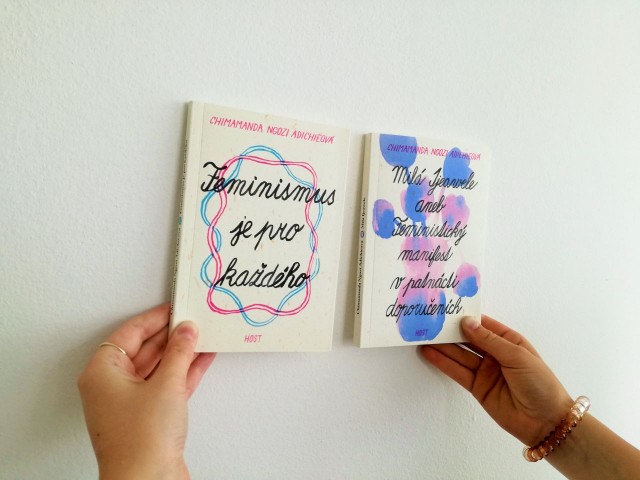 CHIMAMANDA NGOZI ADICHIEOVÁ
Feminismus
je pro
každého
HOST
CHIMAMANDA NGOZI ADICHIEOVÁ
Milá Ijeawele
aneb
Feministický
manifest
v patnácti
doporučeních
HOST